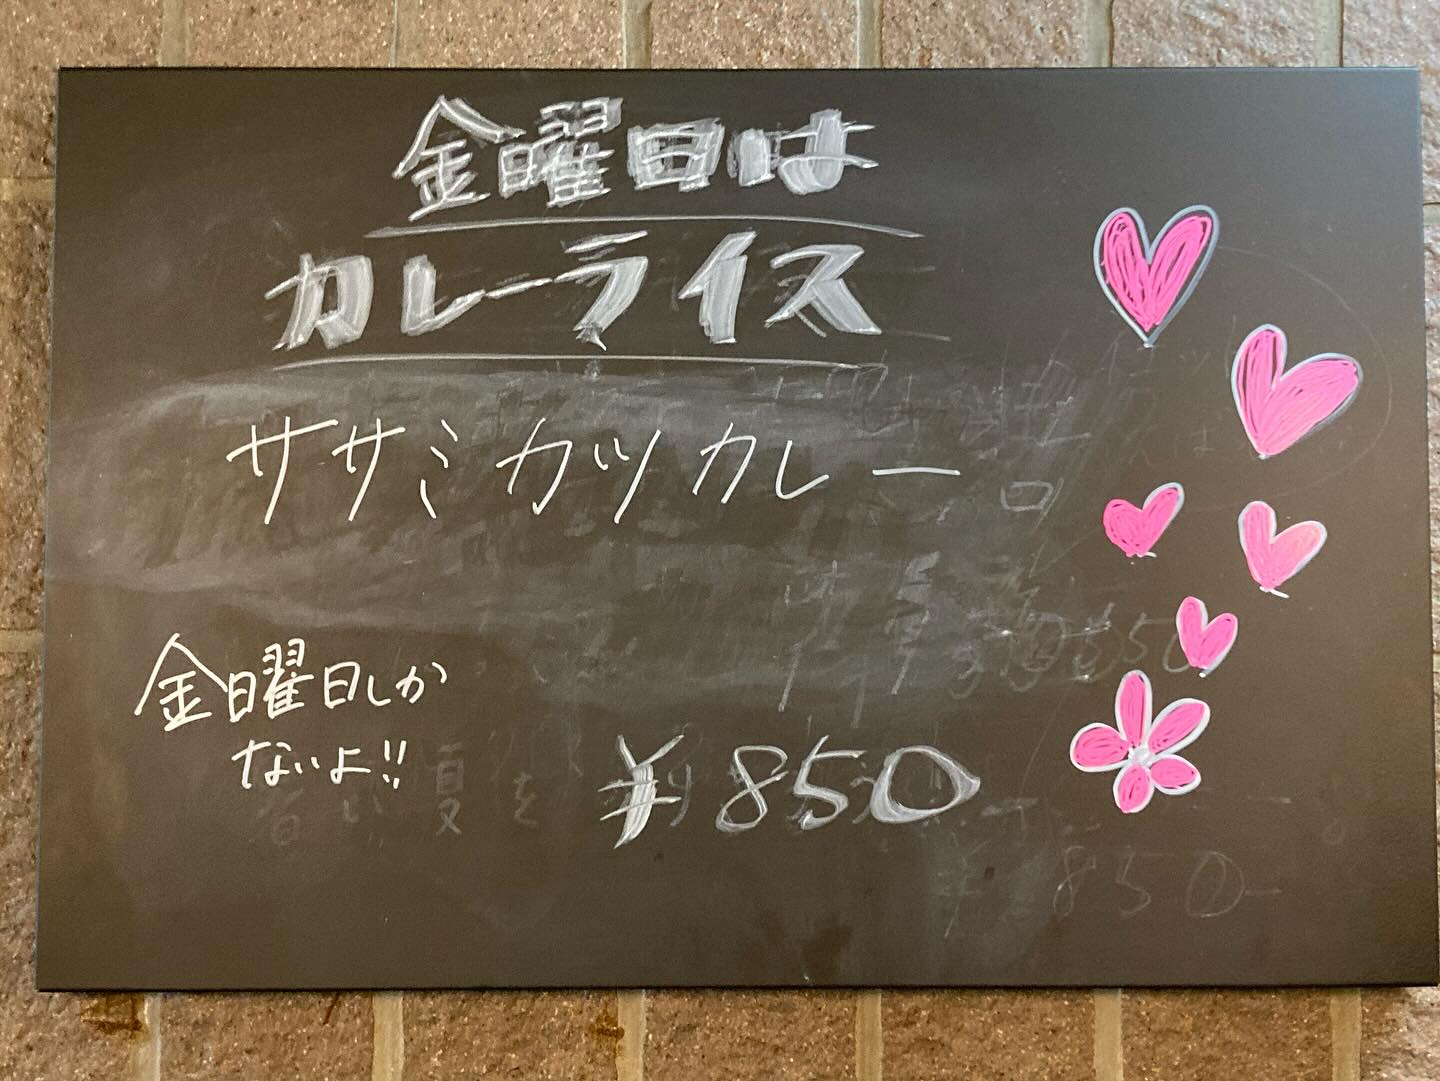 金曜日は
カレーライス
ササミカツカレー
金曜日しか
ないよ!!
¥850